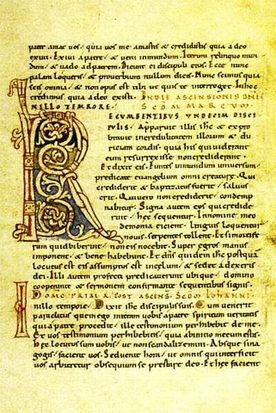 pater amat vos, quia vos me amastis & credidistis quia a deo
exivi. Exivi a patre & veni in mundum. Iterum relinquo mun
dum & vado ad patrem. Dicunt ei discipuli eius. Ecce nunc
palam loqueris, & proverbium nullum dicis. Nunc scimus quia
scis omnia, & non opus est tibi ut quis te interroget. In hoc
credimus quia a deo existi. IN DIE ASCENSIONIS DNI
IN ILLO TEMPORE. SCDM MARCUM.
RECUMBENTIBUS UNDECIM DISCI
PULIS. Apparuit illis ihc & expro
bravit incredulitatem illorum & du
riciam cordis. quia his qui viderant
eum resurrexisse non crediderunt.
Et dixit eis. Euntes in mundum universum
predicate evangelium omni creaturę. Qui
crediderit & baptizatus fuerit, salvus
erit. Qui vero non crediderit condemp
nabitur. Signa autem eos qui credide
rint, hęc sequentur. In nomine meo
demonia eicient, linguis loquentur
novis, serpentes tollent. Et si mortiferum
quid biberint, non eis nocebit. Super egros manus
imponent, & bene habebunt. Et dns quidem ihc postquam
locutus est eis assumptus est in celum, & sedet a dextris
dei. Illi autem profecti predicaverunt ubique, domino
cooperante & sermonem confirmante sequentibus signis.
DOMINICA I POST ASCENS. SCDM IOHANNEM.
In illo tempore. Dixit ihc discipulis suis. Cum venerit
paraclitus quem ego mittam vobis a patre spiritum veritatis
qui a patre procedit, ille testimonium perhibebit de me.
Et vos testimonium perhibebitis, quia ab initio mecum estis.
Hęc locutus sum vobis, ut non scandalizemini. Absque sina
gogis facient vos. Sed venit hora, ut omnis qui interficit
vos arbitretur obsequium se prestare deo. Et hęc facient